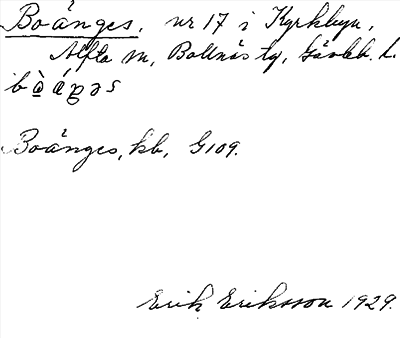 Boänges, nr 17 i Kyrkbyn,
Alfta sn, Bollnäs tg, Gävleb. l.
Boänges, kb, G109.
Erik Eriksson 1929.